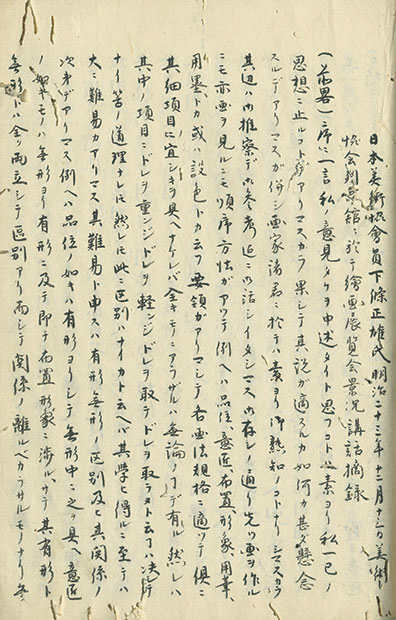 日本美術協会員下條正雄氏明治二十三年十二月十三日美術
協会列品館ニ於テ繪画展覧会景况講話摘録
(前畧)序ニ一言私ノ意見タケヲ申述タイト思フコト素ヨリ私一己ノ
思想ニ止ルコトデアリマスカラ果シテ其説カ適スルカ如何カ甚ダ懸念
スルデアリマスガ併シ画家諸君ニ於テハ素ヨリ御熟知ノコトナリシマスカラ
其辺ハ御推察デ御参考迠ニ御話シイタシマス御存シノ通リ先ツ画ヲ作ル
ニモ亦画ヲ見ルニモ順序方法カアツテ例ヘハ品位、意匠、布置、形象、用筆、
用墨トカ或ハ設色トカ云フ要領ガアリマシテ各画法規格ニ適ツテ倶ニ
其細項目ニ宜シキヲ具ヘナケレバ全キモノニアラザルハ無論ノコデ有ル然レハ
其中ノ項目ニドレヲ重ンジドレヲ軽ンジドレヲ取テドレヲ取ラヌト云フハ决シテ
ナイ筈ノ道理ナレ𪜈然レ𪜈此ニ区別ハナイカト云ヘハ其學ヒ得ルニ至テハ
大ニ難易カアリマス其難易ト申スハ有形無形ノ区別及ヒ其関係ノ
次第デアリマス例ヘハ品位ノ如キハ有形ヨリシテ無形中ニ之ヲ具ヘ意匠
ノ如キモノハ無形ヨリ有形ニ及テ即チ布置形象ニ渉ルサテ其有形ト
無形トハ全ク両立シテ区別アリ而シテ関係ノ離ルベカラサルモノナリ